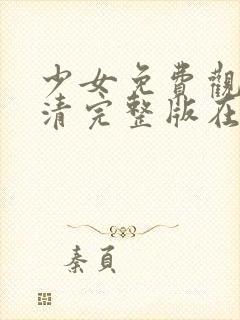 少女免費觀
清完整版在
秦頁